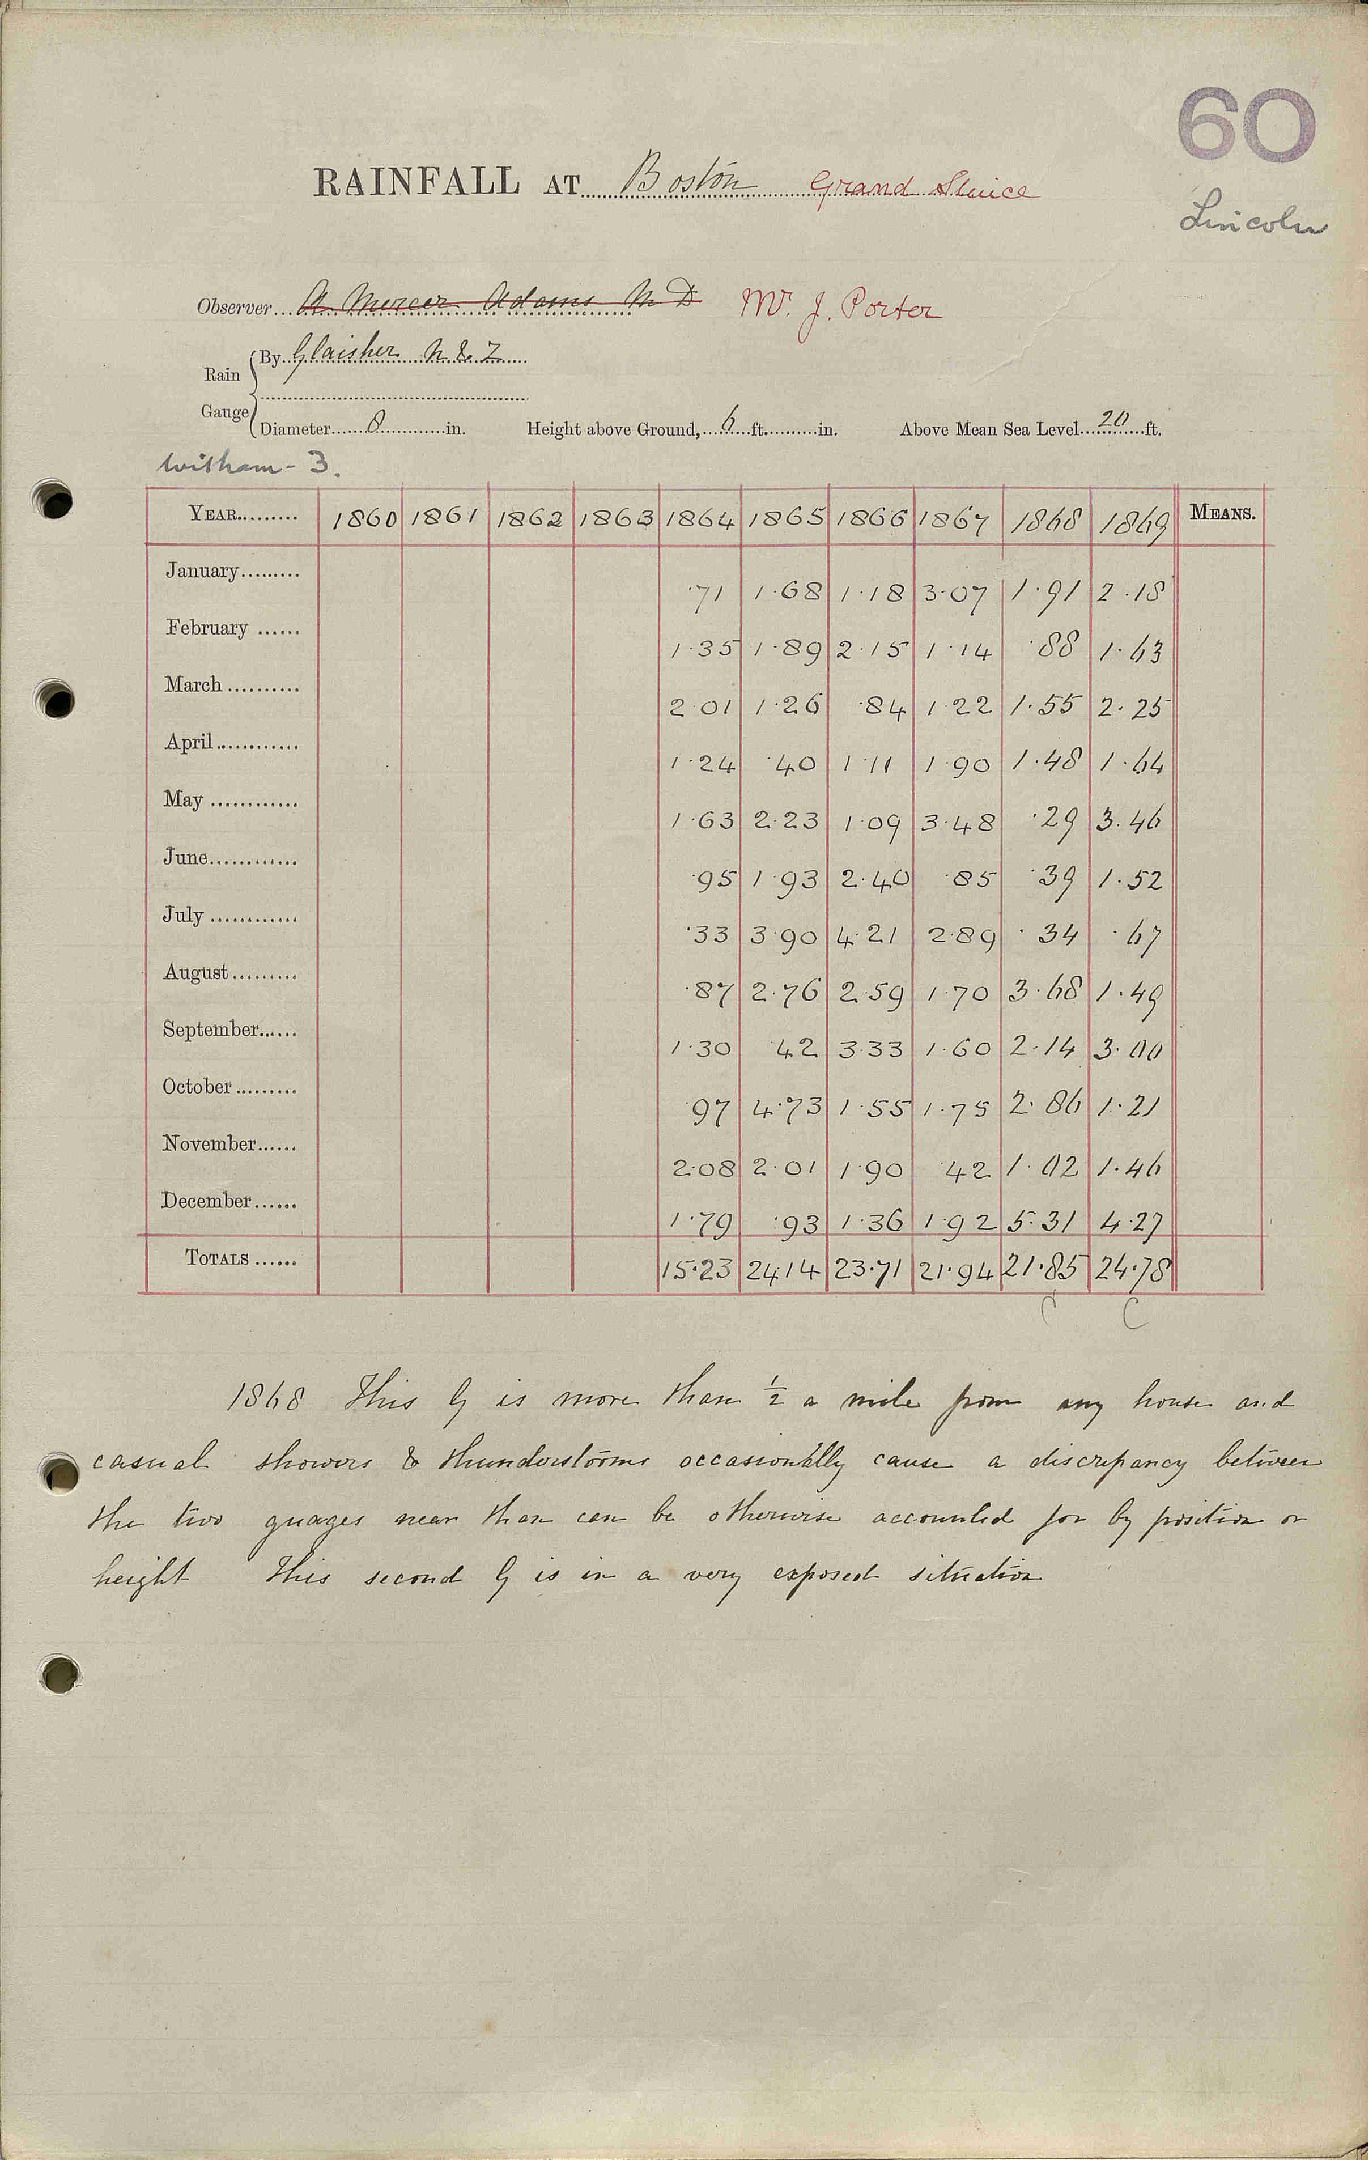 60
RAINFALL AT Boston Grand Sluice
Lincoln
Observer A Mercer Adams M D Mr. J. Porter
Rain Gauge By Glaisher N & Z
Diameter 8 in. Height above Ground, 6 ft. in. Above Mean Sea Level 20 ft.
Witham - 3.
YEAR 1860 1861 1862 1863 1864 1865 1866 1867 1868 1869 MEANS.
January .71 1.68 1.18 3.07 1.91 2.18
February 1.35 1.89 2.15 1.14 .88 1.63
March 2.01 1.26 .84 1.22 1.55 2.25
April 1.24 .40 1.11 1.90 1.48 1.64
May 1.63 2.23 1.09 3.48 .29 3.46
June .95 1.93 2.40 .85 .39 1.52
July .33 3.90 4.21 2.89 .34 .67
August .87 2.76 2.59 1.70 3.68 1.49
September 1.30 .42 3.33 1.60 2.14 3.00
October .97 4.73 1.55 1.75 2.86 1.21
November 2.08 2.01 1.90 .42 1.02 1.46
December 1.79 .93 1.36 1.92 5.31 4.27
TOTALS 15.23 24.14 23.71 21.94 21.85 24.78
C C
1868 This G is more than ½ a mile from any house and
casual showers & thunderstorms occasionally cause a discrepancy between
the two guages near than can be otherwise accounted for by position or
height This second G is in a very exposed situation